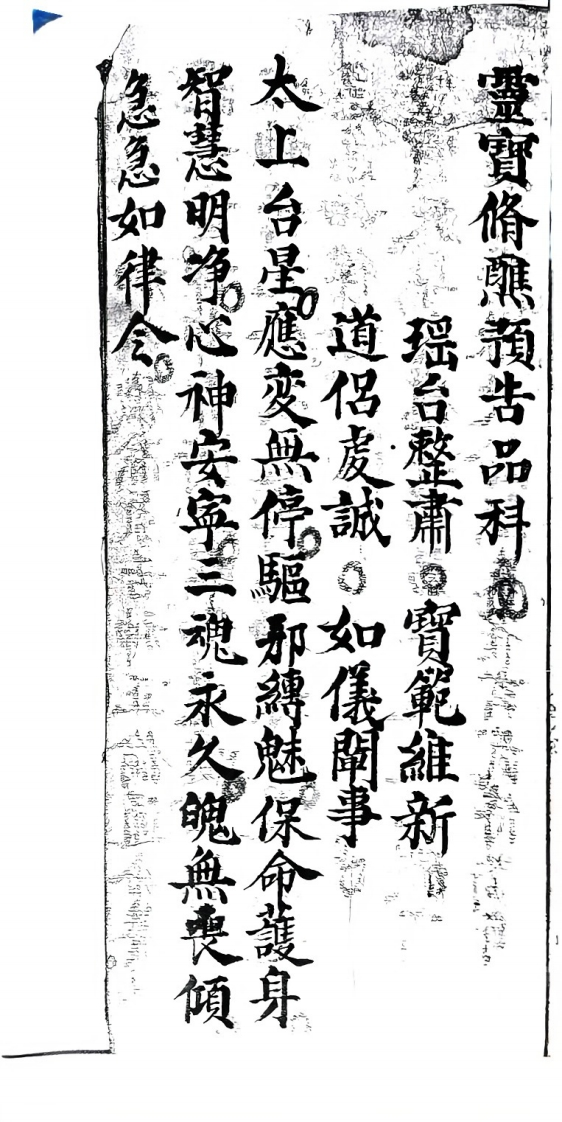 靈寶脩醮預告品科
瑶台整肅 寶範維新
道侣虔誠 如儀闡事
太上台星應変無停驅邪縛魅保命護身
智慧明净心神安寧三魂永久魄無喪傾
急急如律令